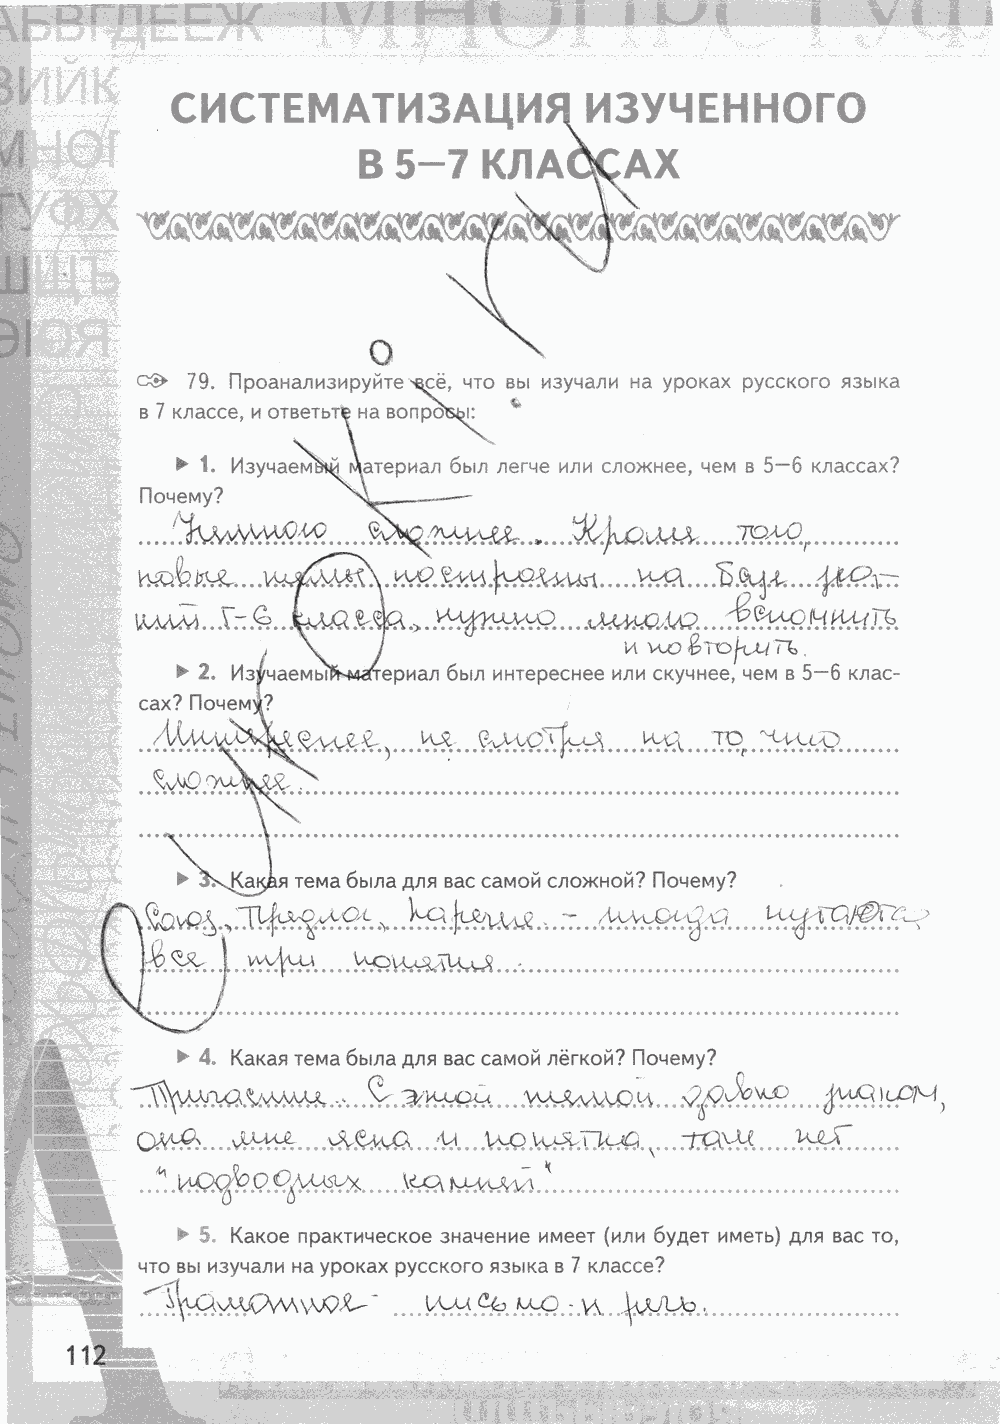 СИСТЕМАТИЗАЦИЯ ИЗУЧЕННОГО
В 5—7 КЛАССАХ
79. Проанализируйте всё, что вы изучали на уроках русского языка
в 7 классе, и ответьте на вопросы:
1. Изучаемый материал был легче или сложнее, чем в 5—6 классах?
Почему?
Немного сложнее. Кроме того,
новые темы построены на базе зна-
ний 5-6 класса, нужно много вспомнить
и повторить.
2. Изучаемый материал был интереснее или скучнее, чем в 5—6 клас-
сах? Почему?
Интереснее, не смотря на то, что
сложнее.
3. Какая тема была для вас самой сложной? Почему?
Союз, Предлог, Наречие - иногда путаются
все три понятия.
4. Какая тема была для вас самой лёгкой? Почему?
Причастие. С этой темой давно знаком,
она мне ясна и понятна, там нет
"подводных камней"
5. Какое практическое значение имеет (или будет иметь) для вас то,
что вы изучали на уроках русского языка в 7 классе?
Грамотное письмо и речь.
112